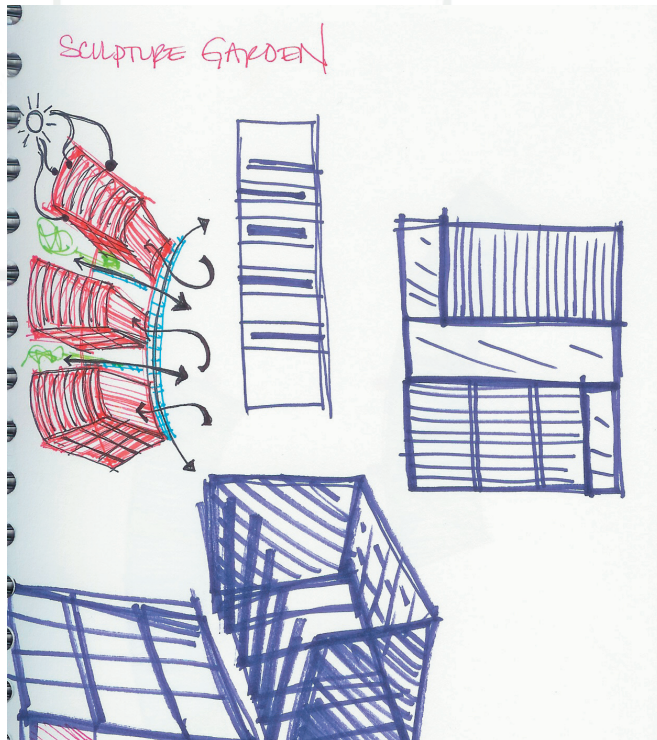 SCULPTURE GARDEN